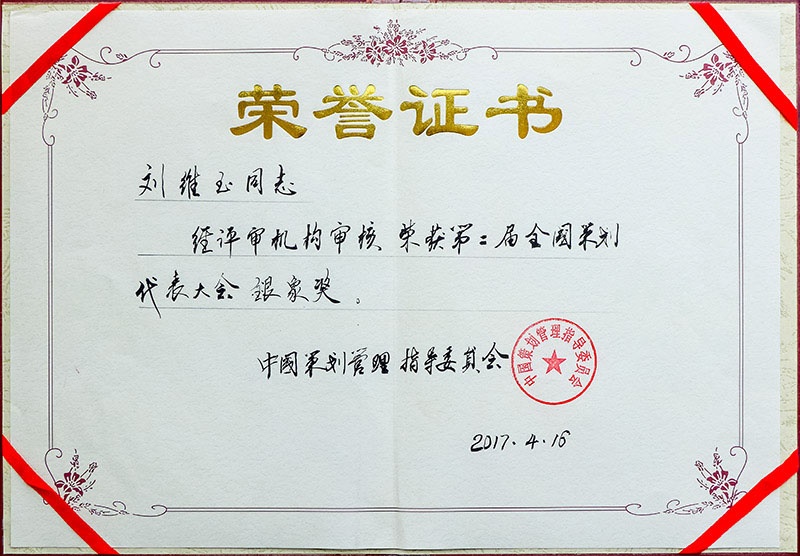 荣誉证书
刘维玉同志
经评审机构审核 荣获第二届全國策划
代表大会 银象奖。
中國策划管理指导委員会
中国策划管理指导委员会
2017.4.16